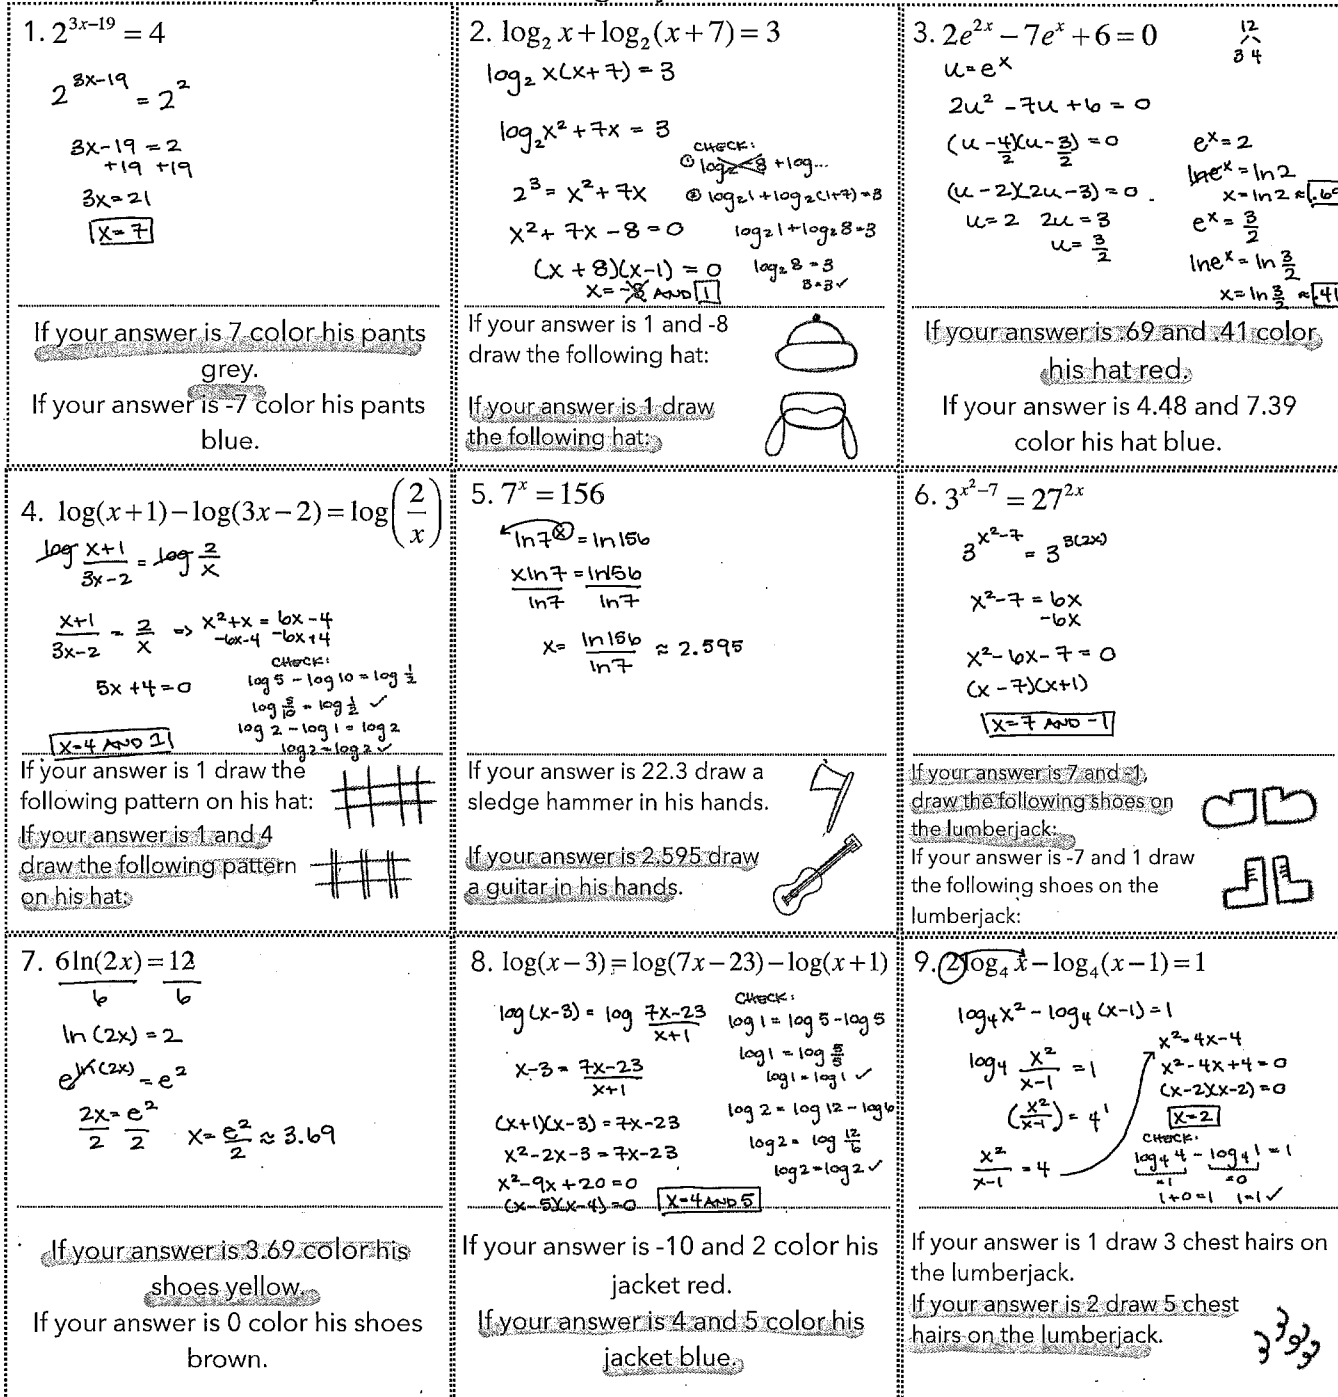 1. 2^{3x-19} = 4
2^{3x-19} = 2^2
3x-19 = 2
+19 +19
3x = 21
x = 7
If your answer is 7 color his pants
grey.
If your answer is -7 color his pants
blue.
2. log₂ x + log₂(x + 7) = 3
log₂ x(x+7) = 3
log₂ x² + 7x = 3
2³ = x² + 7x
x² + 7x - 8 = 0
(x + 8)(x - 1) = 0
x = -8 AND 1
CHECK:
① log₂ -8 + log...
② log₂ 1 + log₂(1+7) = 3
log₂ 1 + log₂ 8 = 3
log₂ 8 = 3
3 = 3 ✓
If your answer is 1 and -8
draw the following hat:
If your answer is 1 draw
the following hat:
3. 2e^{2x} - 7e^x + 6 = 0
12
3 4
u = e^x
2u² - 7u + 6 = 0
(u - 4/2)(u - 3/2) = 0
(u - 2)(2u - 3) = 0
u = 2 2u = 3
u = 3/2
e^x = 2
lne^x = ln2
x = ln2 ≈ .69
e^x = 3/2
lne^x = ln 3/2
x = ln 3/2 ≈ .41
If your answer is .69 and .41 color
his hat red.
If your answer is 4.48 and 7.39
color his hat blue.
4. log(x+1) - log(3x-2) = log(2/x)
log (x+1)/(3x-2) = log 2/x
(x+1)/(3x-2) = 2/x => x² + x = 6x - 4
-6x-4 -6x+4
5x + 4 = 0
x = 4 AND 1
CHECK:
log 5 - log 10 = log 1/2
log 5/10 = log 1/2 ✓
log 2 - log 1 = log 2
log 2 = log 2 ✓
If your answer is 1 draw the
following pattern on his hat:
If your answer is 1 and 4
draw the following pattern
on his hat:
5. 7^x = 156
ln7^x = ln156
xln7/ln7 = ln156/ln7
x = ln156/ln7 ≈ 2.595
If your answer is 22.3 draw a
sledge hammer in his hands.
If your answer is 2.595 draw
a guitar in his hands.
6. 3^{x²-7} = 27^{2x}
3^{x²-7} = 3^{3(2x)}
x² - 7 = 6x
-6x
x² - 6x - 7 = 0
(x - 7)(x+1)
x = 7 AND -1
If your answer is 7 and -1,
draw the following shoes on
the lumberjack:
If your answer is -7 and 1 draw
the following shoes on the
lumberjack:
7. 6ln(2x) = 12
6 6
ln (2x) = 2
e^{ln(2x)} = e²
2x/2 = e²/2 x = e²/2 ≈ 3.69
If your answer is 3.69 color his
shoes yellow.
If your answer is 0 color his shoes
brown.
8. log(x-3) = log(7x-23) - log(x+1)
log(x-3) = log (7x-23)/(x+1)
x-3 = (7x-23)/(x+1)
(x+1)(x-3) = 7x-23
x² - 2x - 3 = 7x - 23
x² - 9x + 20 = 0
(x-5)(x-4) = 0 x = 4 AND 5
CHECK:
log 1 = log 5 - log 5
log 1 = log 5/5
log 1 = log 1 ✓
log 2 = log 12 - log 6
log 2 = log 12/6
log 2 = log 2 ✓
If your answer is -10 and 2 color his
jacket red.
If your answer is 4 and 5 color his
jacket blue.
9. 2log₄ x - log₄(x-1) = 1
log₄ x² - log₄ (x-1) = 1
log₄ x²/(x-1) = 1
(x²/(x-1)) = 4^1
x²/(x-1) = 4
x² = 4x - 4
x² - 4x + 4 = 0
(x-2)(x-2) = 0
x = 2
CHECK:
log₄ 4 - log₄ 1 = 1
=1 =0
1+0=1 1=1 ✓
If your answer is 1 draw 3 chest hairs on
the lumberjack.
If your answer is 2 draw 5 chest
hairs on the lumberjack.